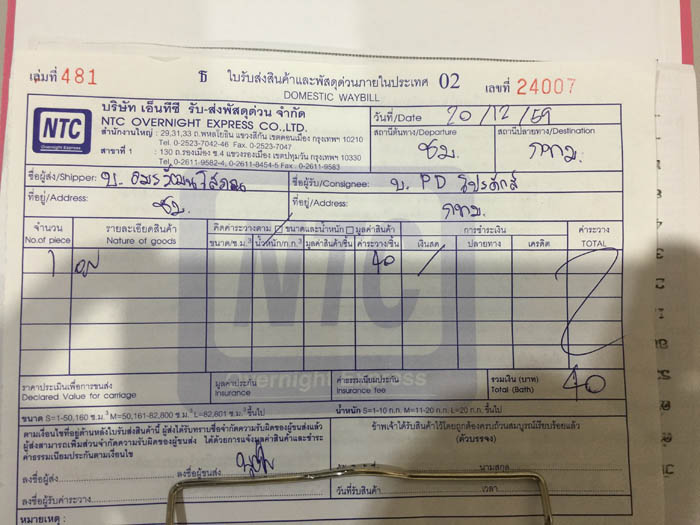 เล่มที่ 481 ใบรับส่งสินค้าและพัสดุด่วนภายในประเทศ 02 เลขที่ 24007
DOMESTIC WAYBILL
NTC
Overnight Express
บริษัท เอ็นทีซี รับ-ส่งพัสดุด่วน จำกัด
NTC OVERNIGHT EXPRESS CO.,LTD.
สำนักงานใหญ่ : 29,31,33 ถ.พหลโยธิน แขวงสีกัน เขตดอนเมือง กรุงเทพฯ 10210
Tel. 0-2523-7042-46 Fax. 0-2523-7047
สาขาที่ 1 : 130 ถ.รองเมือง ซ.4 แขวงรองเมือง เขตปทุมวัน กรุงเทพฯ 10330
Tel. 0-2611-9582-4, 0-2611-8454-5 Fax. 0-2611-9583
วันที่/Date 20/12/59
สถานีต้นทาง/Departure สถานีปลายทาง/Destination
ชบ. กทม.
ชื่อผู้ส่ง/Shipper: บ. ชื่อผู้รับ/Consignee: บ. PD
ที่อยู่/Address: ชบ. ที่อยู่/Address: กทม.
จำนวน รายละเอียดสินค้า คิดค่าระวางตาม ขนาดและน้ำหนัก มูลค่าสินค้า การชำระเงิน ค่าระวาง
No.of piece Nature of goods ขนาด/ซ.ม.³ น้ำหนัก/ก.ก. มูลค่าสินค้า/ชิ้น ค่าระวาง/ชิ้น เงินสด ปลายทาง เครดิต TOTAL
1 40 /
NTC
Overnight Express
ราคาประเมินเพื่อการขนส่ง มูลค่าประกัน ค่าธรรมเนียมประกัน รวมเงิน (บาท) 40
Declared Value for carriage Insurance Insurance fee Total (Bath)
ขนาด S=1-50,160 ซ.ม.³ M=50,161-82,800 ซ.ม.³ L=82,801 ซ.ม.³ขึ้นไป น้ำหนัก S=1-10 ก.ก. M=11-20 ก.ก. L=20 ก.ก. ขึ้นไป
ตามเงื่อนไขที่อยู่ด้านหลังใบรับส่งสินค้านี้ ผู้ส่งได้รับทราบข้อจำกัดความรับผิดของผู้ขนส่งแล้ว
ผู้ส่งสามารถเพิ่มส่วนจำกัดความรับผิดของผู้ขนส่ง ได้ด้วยการแจ้งมูลค่าสินค้าและชำระ
ค่าธรรมเนียมประกันตามเงื่อนไข
ข้าพเจ้าได้รับสินค้าไว้โดยถูกต้องครบถ้วนสมบูรณ์เรียบร้อยแล้ว
(ตัวบรรจง)
ลงชื่อผู้ส่ง ลงชื่อผู้ขนส่ง นามสกุล
ลงชื่อผู้รับค่าระวาง วันที่รับสินค้า เวลา
หมายเหตุ :